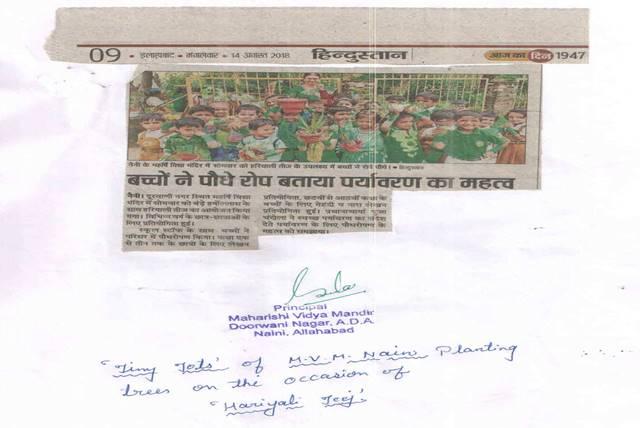 09 • इलाहाबाद • मंगलवार • 14 अगस्त 2018 हिन्दुस्तान आज का दिन 1947
नैनी के महर्षि विद्या मन्दिर में सोमवार को हरियाली तीज के उपलक्ष्य में बच्चों ने रोपे पौधे। • हिन्दुस्तान
बच्चों ने पौधे रोप बताया पर्यावरण का महत्व
नैनी। दूरवाणी नगर स्थित महर्षि विद्या
मंदिर में सोमवार को बड़े हर्षोल्लास के
साथ हरियाली तीज का आयोजन किया
गया। विभिन्न वर्ग के छात्र-छात्राओं के
लिए प्रतियोगिता हुई।
स्कूल स्टॉफ के साथ बच्चों ने
परिसर में पौधरोपण किया। कक्षा एक
से तीन तक के छात्रों के लिए लेखन
प्रतियोगिता, छठवीं से आठवीं कक्षा के
बच्चों के लिए मेंहदी व नारा लेखन
प्रतियोगिता हुई। प्रधानाचार्या
चंदीला ने स्वच्छ पर्यावरण का संदेश
देते पर्यावरण के लिए पौधरोपण के
महत्व को समझाया।
Principal
Maharishi Vidya Mandir
Doorwani Nagar, A.D.A.
Naini, Allahabad
'Tiny Tots' of M.V.M. Naini Planting
trees on the occasion of
'Hariyali Teej'